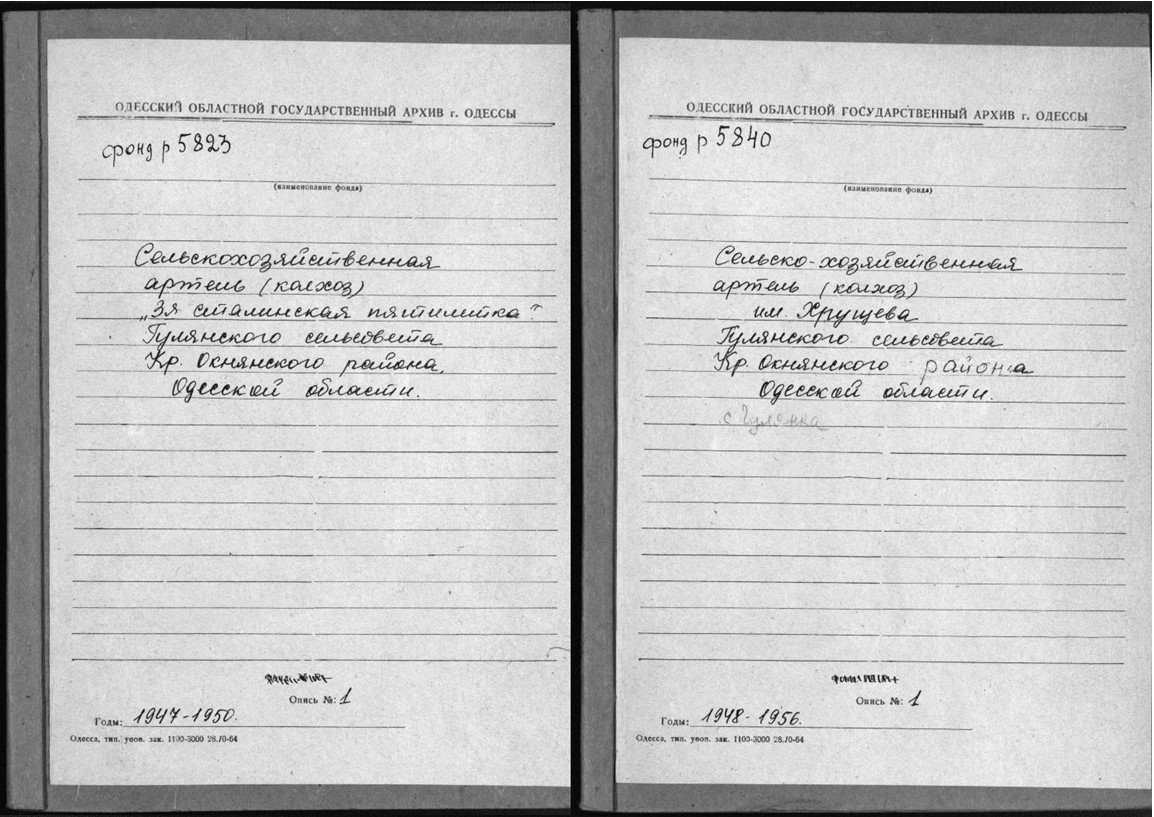 ОДЕССКИЙ ОБЛАСТНОЙ ГОСУДАРСТВЕННЫЙ АРХИВ г. ОДЕССЫ
фонд р 5823
(наименование фонда)
Сельскохозяйственная
артель (колхоз)
„3я сталинская пятилетка"
Гулянского сельсовета
Кр. Окнянского района,
Одесской области.
Опись №: 1
Годы: 1947-1950.
Одесса, тип. увоп. зак. 1100-3000 28.10-64
ОДЕССКИЙ ОБЛАСТНОЙ ГОСУДАРСТВЕННЫЙ АРХИВ г. ОДЕССЫ
фонд р 5840
(наименование фонда)
Сельско-хозяйственная
артель (колхоз)
им. Хрущева
Гулянского сельсовета
Кр. Окнянского района
Одесской области.
с. Гулянка
Опись №: 1
Годы: 1948-1956.
Одесса, тип. увоп. зак. 1100-3000 28.10-64